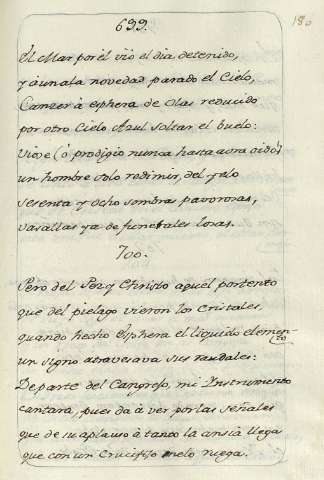 180
699.
El Mar por él vió el dia detenido,
y áun á la novedad parado el Cielo,
Canzer á esphera de olas reducido
por otro Cielo Azul soltar el buelo:
viose (ó prodigio nunca hasta aora oido!)
un hombre solo redimir, del yelo
sesenta y ocho sombras pavorosas,
vasallas ya de funerales losas.
700.
Pero del Pez y Christo aquél portento
que del pielago vieron los Cristales,
quando hecho Esphera el liquido elemento
un signo atravesava sus raudales:
De parte del Cangrejo, mi Instrumento
cantara, pues da á ver por las señales
que de su aplauso á tanto la ansia llega
que con un Crucifijo melo ruega.